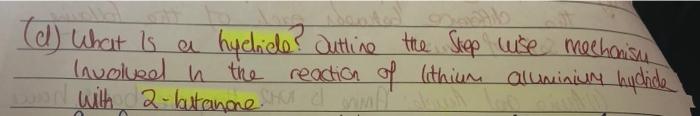 (d) What Is a hydride? Outline the Step wise mechanism
Involved in the reaction of lithium aluminium hydride
with 2-butanone.